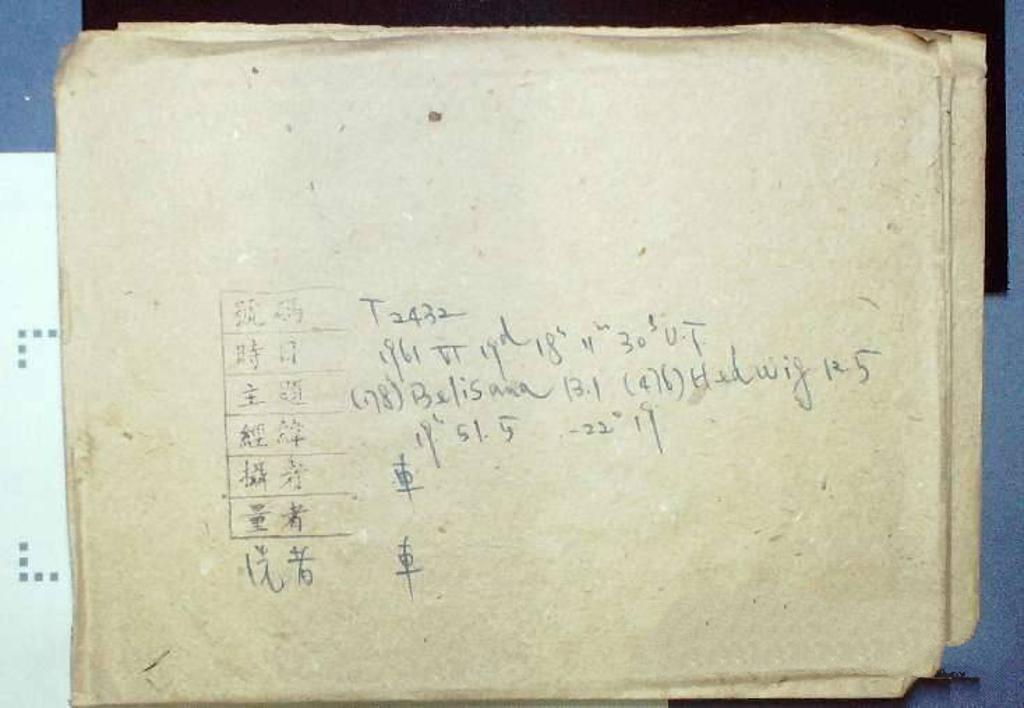 號碼 T2432
時日 1961 VI 19ᵈ 18ʰ 11ᵐ 30ˢ U.T
主題 (178) Belisana 13.1 (476) Hedwig 12.5
經緯 19ʰ 51.5 -22° 19
攝者 車
量者
洗者 車